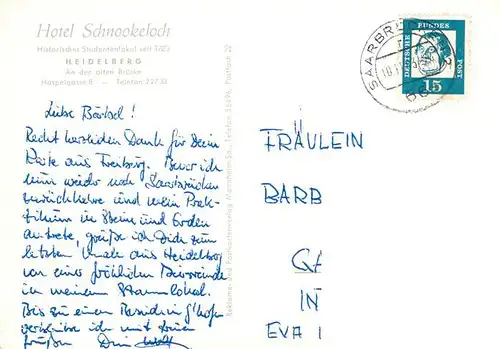 Hotel Schnookeloch
Historisches Studentenlokal seit 1703
HEIDELBERG
An der alten Brücke
Haspelgasse 8 — Telefon 22733
Liebe Bärbel!
Recht herzlichen Dank für Dein
Karte aus Freiburg. Bevor ich
nun wieder nach Saarbrücken
zurückkehre und mein Prak-
tikum in Steine und Erden
antrete, grüße ich Dich zum
letzten Male aus Heidelberg
von einer fröhlichen Bierrunde
in meinem Stammlokal.
Bis zu einem
ich mit
Grüßen Dein
Reklame- und Postkartenverlag Mannheim Telefon Postfach
SAARBRÜ
DEUTSCHE BUNDES POST
15
FRÄULEIN
BARB
IN
EVA